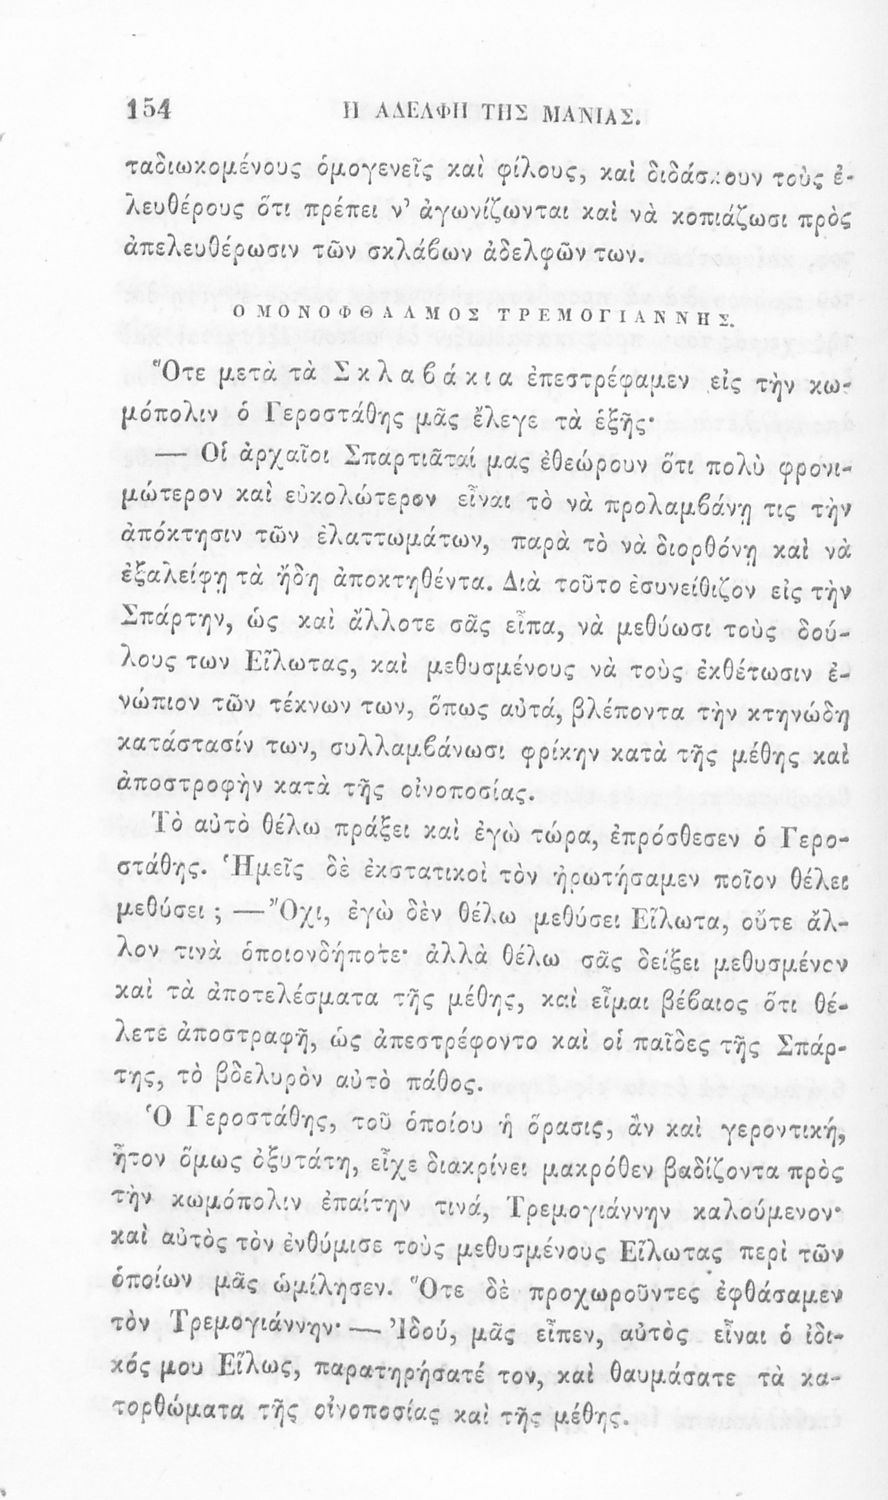 154 Η ΑΔΕΛΦΗ ΤΗΣ ΜΑΝΙΑΣ.
ταδιωκομένους ὁμογενεῖς καὶ φίλους, καὶ διδάσκουν τοὺς ἐ-
λευθέρους ὅτι πρέπει ν’ ἀγωνίζωνται καὶ νὰ κοπιάζωσι πρὸς
ἀπελευθέρωσιν τῶν σκλάβων ἀδελφῶν των.
Ο ΜΟΝΟΦΘΑΛΜΟΣ ΤΡΕΜΟΓΙΑΝΝΗΣ.
Ὅτε μετὰ τὰ Σκλαβάκια ἐπεστρέφαμεν εἰς τὴν κω-
μόπολιν ὁ Γεροστάθης μᾶς ἔλεγε τὰ ἑξῆς·
— Οἱ ἀρχαῖοι Σπαρτιᾶταί μας ἐθεώρουν ὅτι πολὺ φρονι-
μώτερον καὶ εὐκολώτερον εἶναι τὸ νὰ προλαμβάνῃ τις τὴν
ἀπόκτησιν τῶν ἐλαττωμάτων, παρὰ τὸ νὰ διορθόνῃ καὶ νὰ
ἐξαλείφῃ τὰ ἤδη ἀποκτηθέντα. Διὰ τοῦτο ἐσυνείθιζον εἰς τὴν
Σπάρτην, ὡς καὶ ἄλλοτε σᾶς εἶπα, νὰ μεθύωσι τοὺς δού-
λους των Εἵλωτας, καὶ μεθυσμένους νὰ τοὺς ἐκθέτωσιν ἐ-
νώπιον τῶν τέκνων των, ὅπως αὐτά, βλέποντα τὴν κτηνώδη
κατάστασίν των, συλλαμβάνωσι φρίκην κατὰ τῆς μέθης καὶ
ἀποστροφὴν κατὰ τῆς οἰνοποσίας.
Τὸ αὐτὸ θέλω πράξει καὶ ἐγὼ τώρα, ἐπρόσθεσεν ὁ Γερο-
στάθης. Ἡμεῖς δὲ ἐκστατικοὶ τὸν ἠρωτήσαμεν ποῖον θέλει
μεθύσει ; — Ὄχι, ἐγὼ δὲν θέλω μεθύσει Εἵλωτα, οὔτε ἄλ-
λον τινὰ ὁποιονδήποτε· ἀλλὰ θέλω σᾶς δείξει μεθυσμένον
καὶ τὰ ἀποτελέσματα τῆς μέθης, καὶ εἶμαι βέβαιος ὅτι θέ-
λετε ἀποστραφῆ, ὡς ἀπεστρέφοντο καὶ οἱ παῖδες τῆς Σπάρ-
της, τὸ βδελυρὸν αὐτὸ πάθος.
Ὁ Γεροστάθης, τοῦ ὁποίου ἡ ὅρασις, ἂν καὶ γεροντική,
ἦτον ὅμως ὀξυτάτη, εἶχε διακρίνει μακρόθεν βαδίζοντα πρὸς
τὴν κωμόπολιν ἐπαίτην τινά, Τρεμογιάννην καλούμενον·
καὶ αὐτὸς τὸν ἐνθύμισε τοὺς μεθυσμένους Εἵλωτας περὶ τῶν
ὁποίων μᾶς ὡμίλησεν. Ὅτε δὲ προχωροῦντες ἐφθάσαμεν
τὸν Τρεμογιάννην· — Ἰδού, μᾶς εἶπεν, αὐτὸς εἶναι ὁ ἰδι-
κός μου Εἵλως, παρατηρήσατέ τον, καὶ θαυμάσατε τὰ κα-
τορθώματα τῆς οἰνοποσίας καὶ τῆς μέθης.